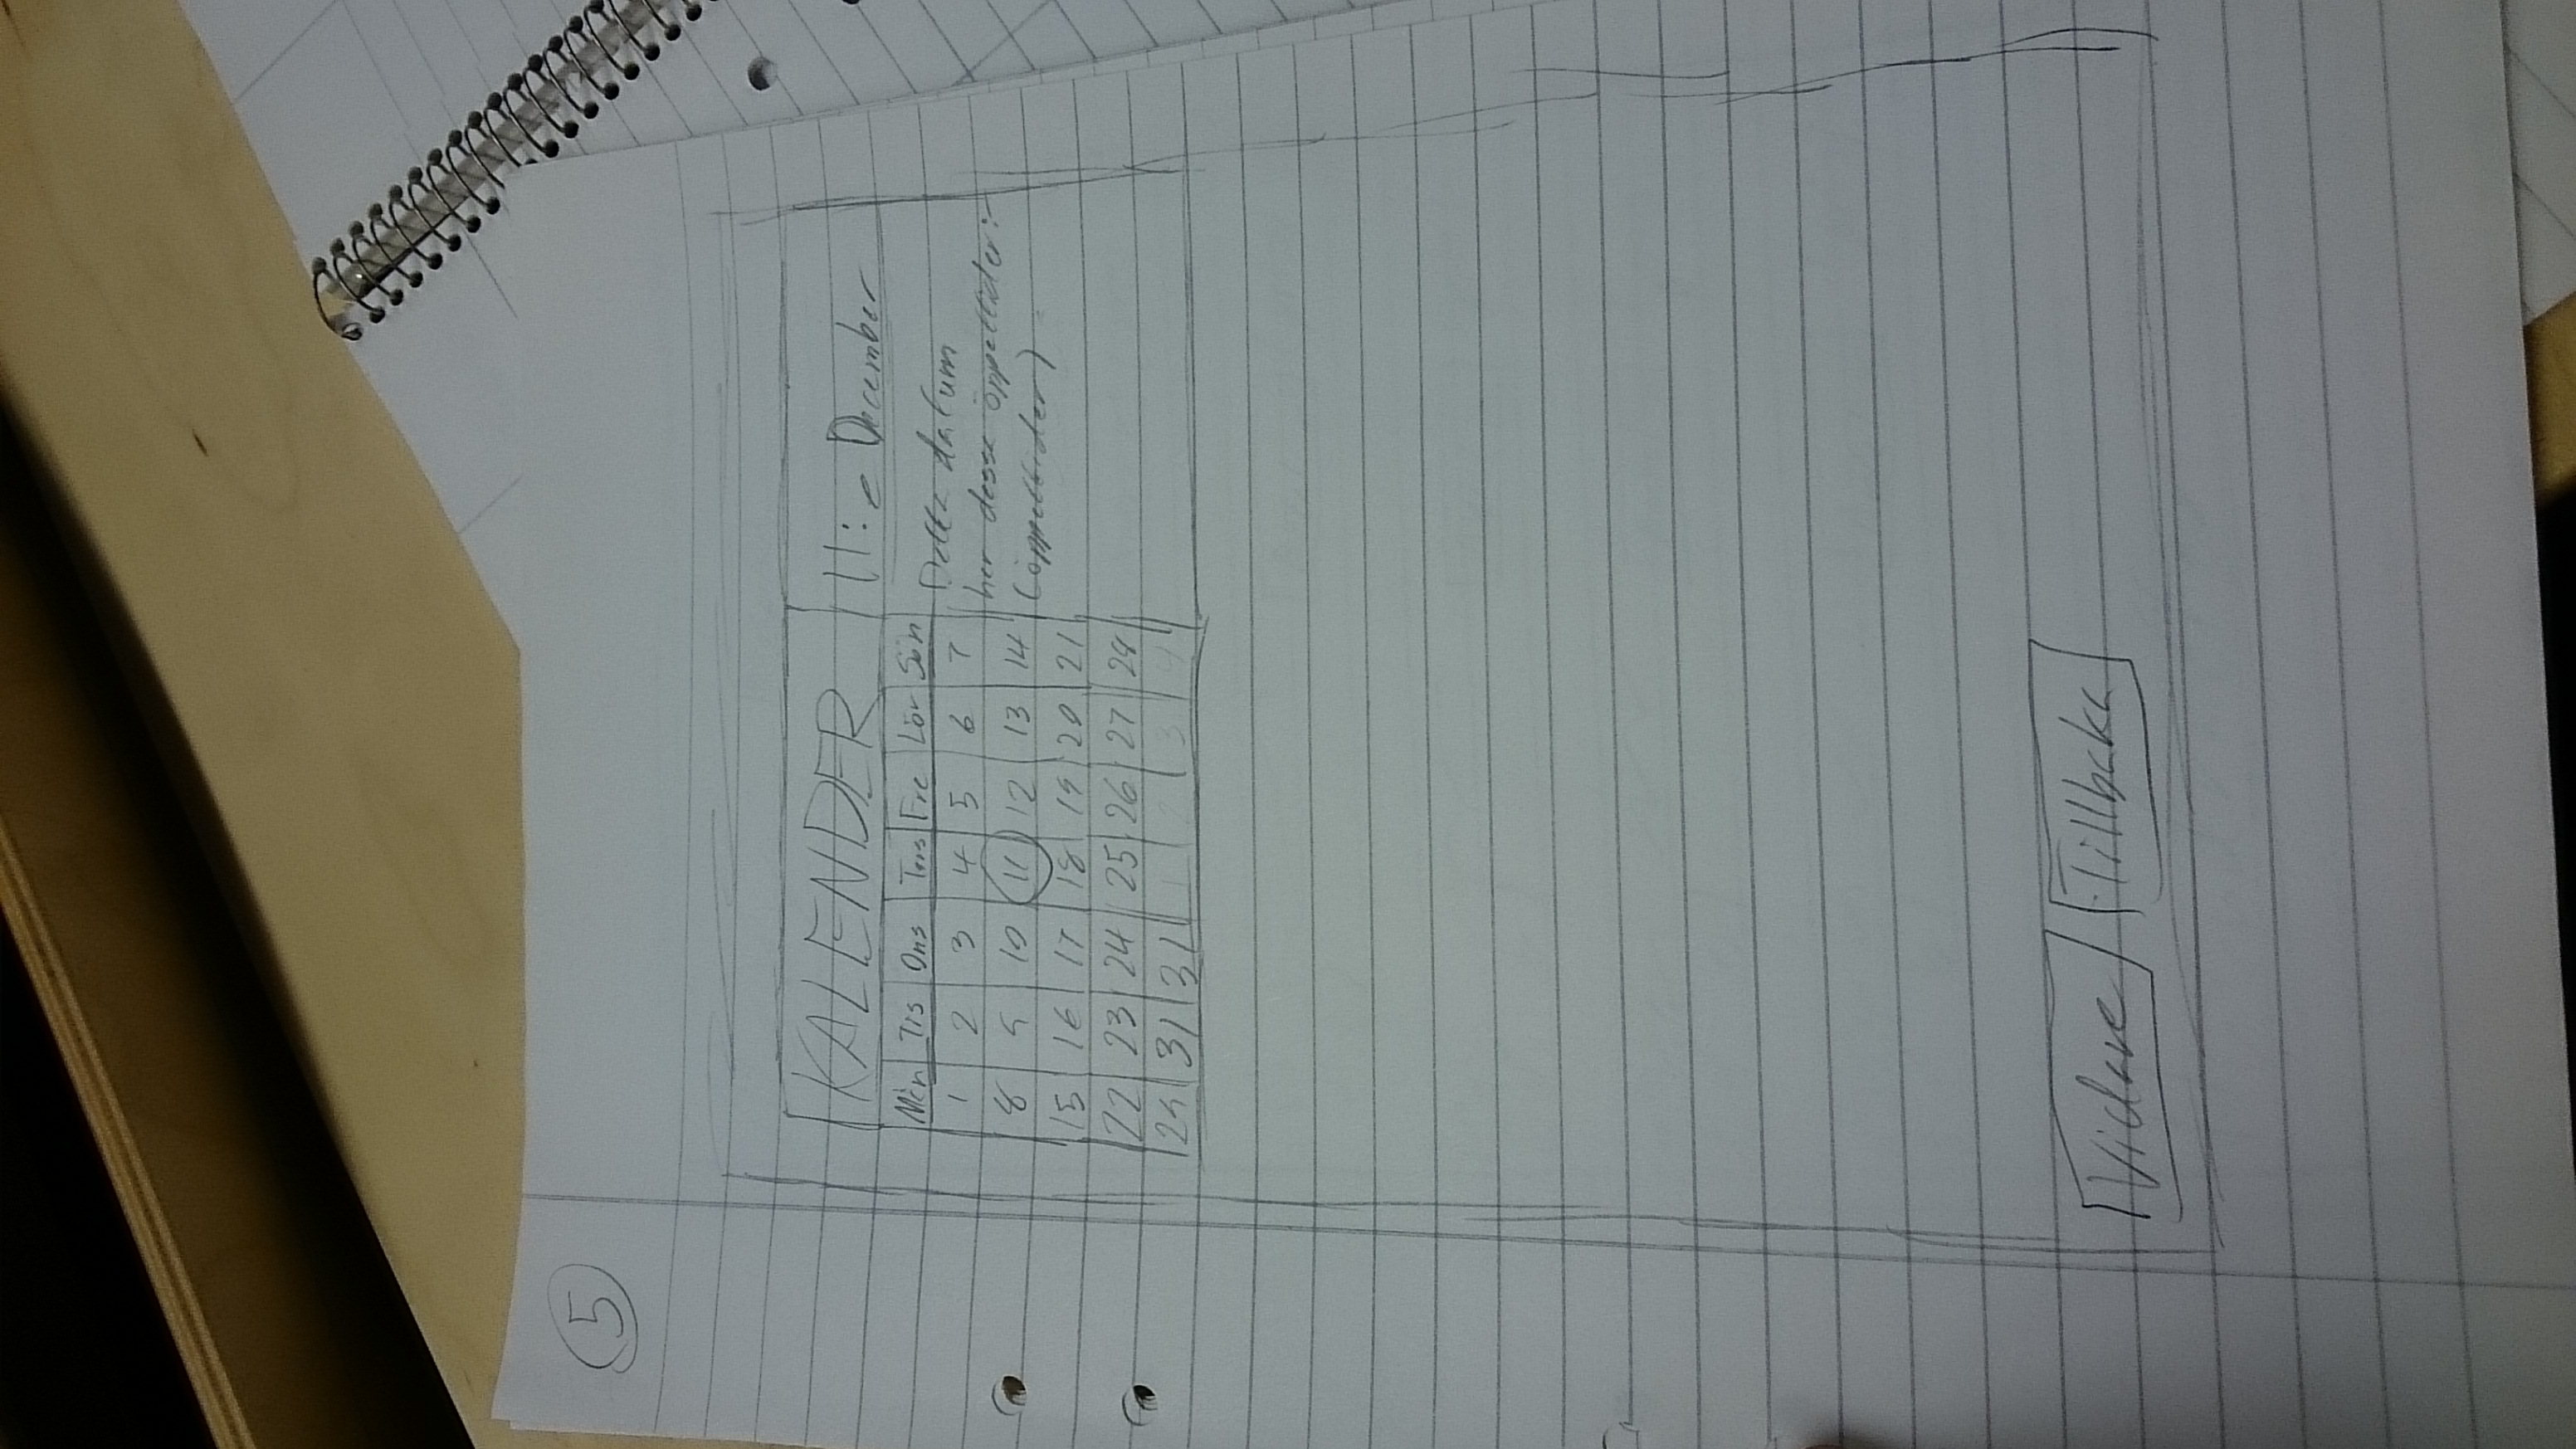 5
KALENDER
11:e December
Mån Tis Ons Tors Fre Lör Sön
1 2 3 4 5 6 7
8 9 10 11 12 13 14
15 16 17 18 19 20 21
22 23 24 25 26 27 28
29 31 31 1 2 3 4
Detta datum
har dessa öppettider:
(öppettider)
Vidare Tillbaka